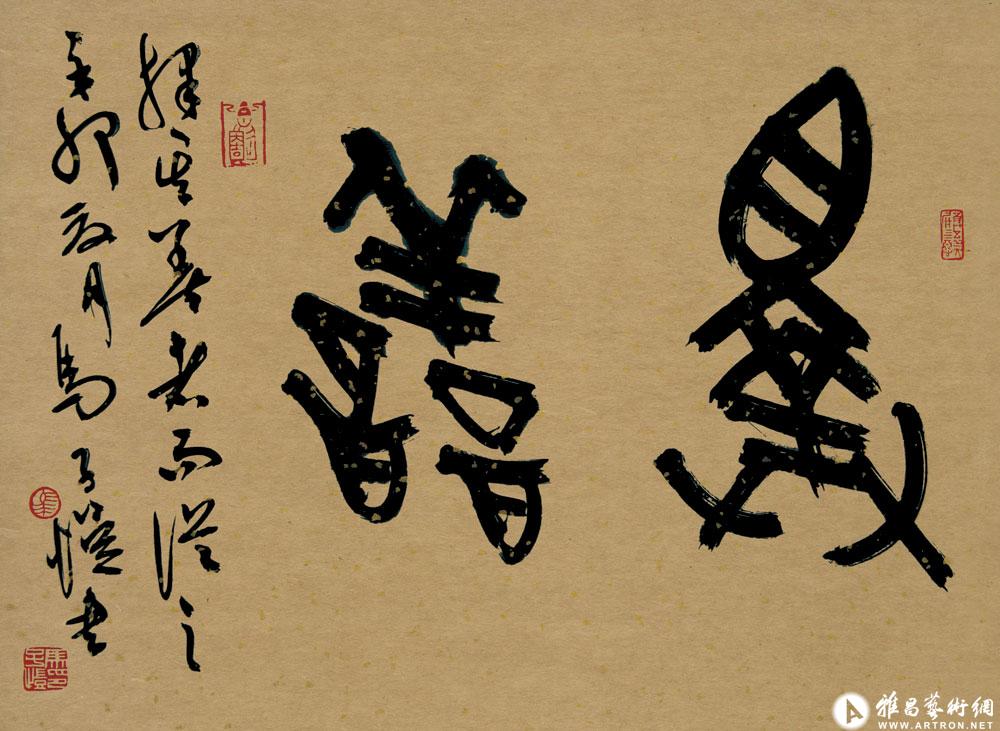 擇善
擇其善者而從之
辛卯夏月馬子愷書
雅昌藝術網
WWW.ARTRON.NET